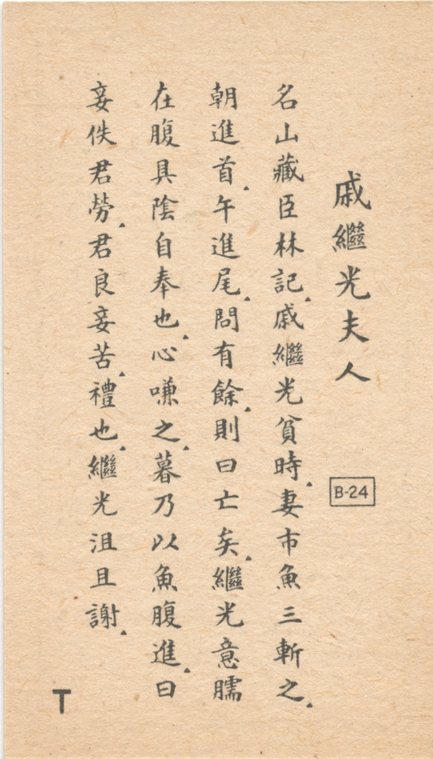 戚繼光夫人
B-24
名山藏臣林記.戚繼光貧時.妻市魚三斬之.
朝進首.午進尾.問有餘.則曰亡矣.繼光意臑
在腹具陰自奉也.心嗛之.暮乃以魚腹進.曰
妾佚君勞.君良妾苦.禮也.繼光沮且謝.
T